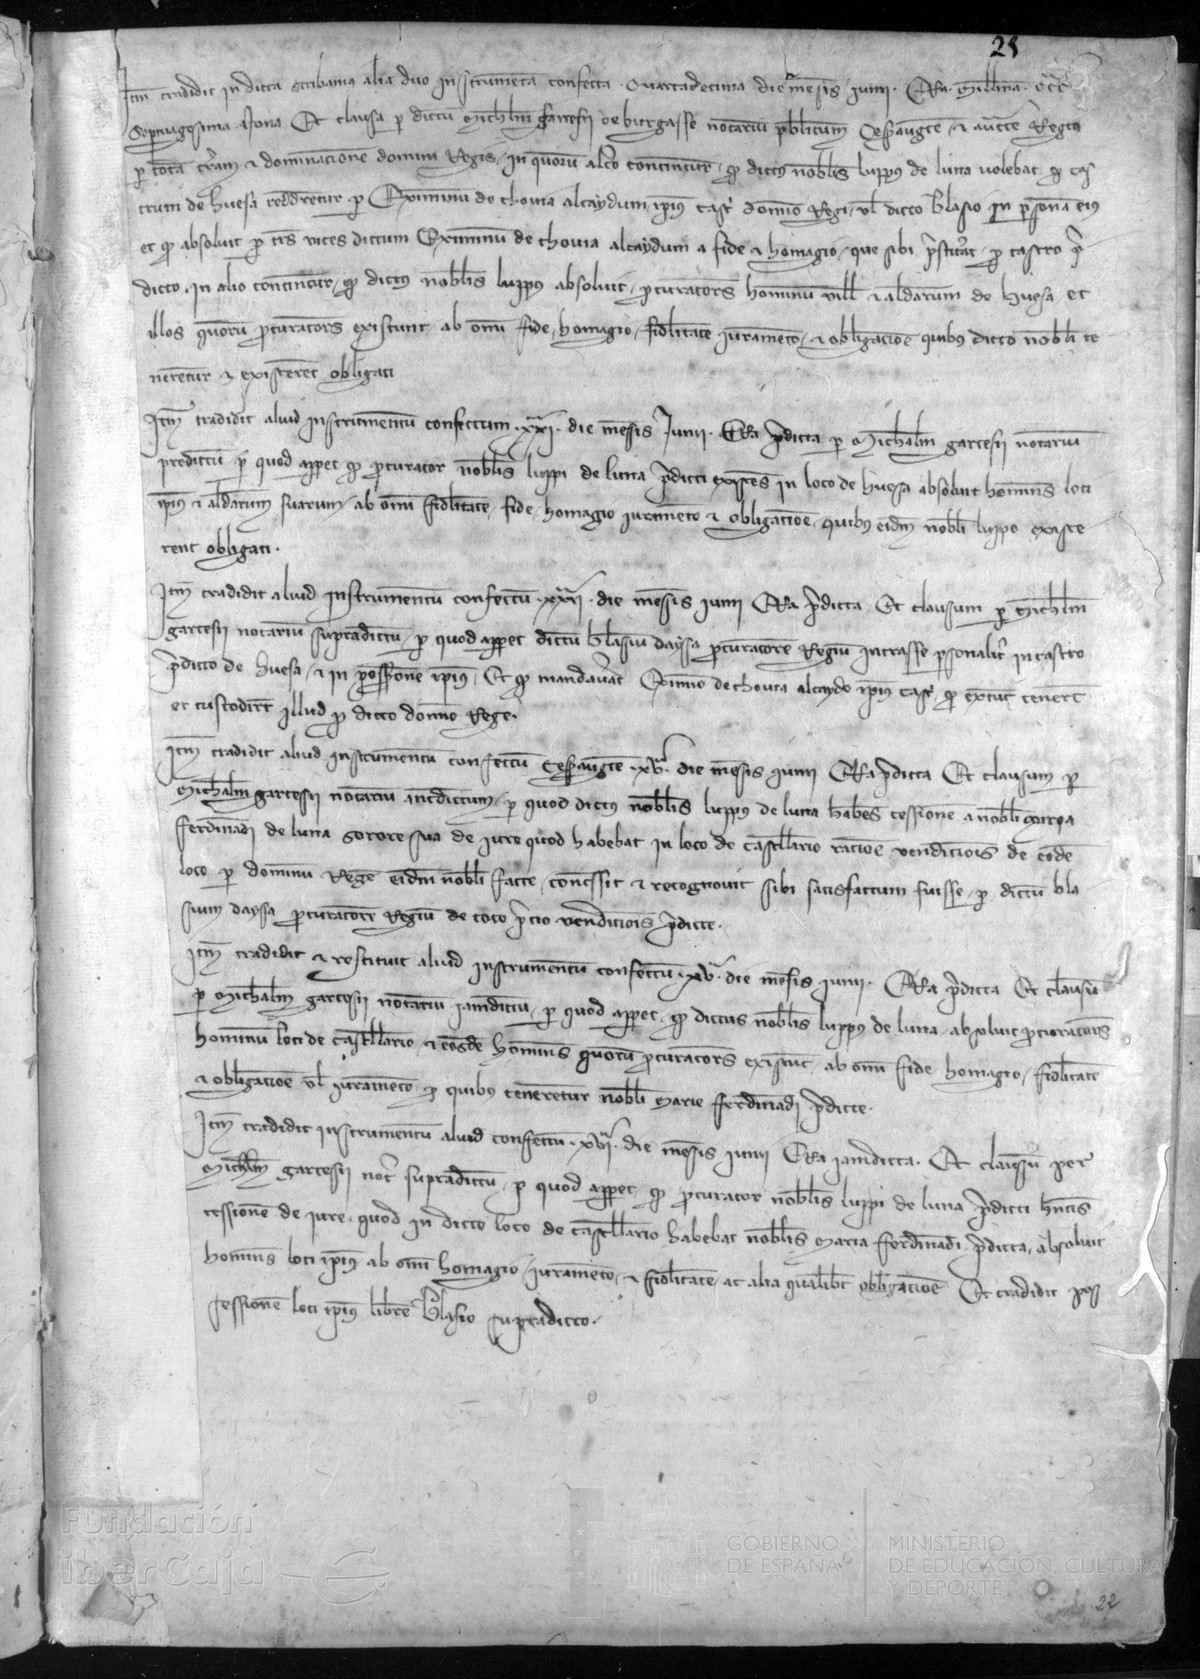 25
Itm tradidit in dicta scribania alia duo instrumenta confecta. Quartadecima die mensis Iunii. Era Millma. CCC
Septuagesima Nona Et clausa p dictu Michlm garcesii de burgasse notariu publicum Cesaraugte & aucte Regia
p tota trram & dominatione domini Regis, in quoru altro continetur, qd dictus nobilis luppus de luna volebat qd cas
trum de huesa redderetur p Eximinu de thovia alcaydum ipius castri domno Regi vl dicto blasio in psona eius
et qd absolvit p tres vices dictum Eximinu de thovia alcaydum a fide & homagio, que sibi prestiterat p castro pre
dicto. In alio continetur, qd dictus nobilis luppus absolvit, procuratores hominu ville & aldearum de huesa et
illos quoru procuratores existunt ab omi fide, homagio, fidlitate iuramento, & obligacioe quibus dicto nobili te
nerentur & existerent obligati
Itm tradidit aliud instrumentu confectum .xxi. die mensis Iunii. Era pdicta p Michalm garcesii notariu
predictu p quod apparet qd procurator nobilis luppi de luna pdicti existens in loco de huesa absolvit homines loci
ipius & aldearum suarum ab omi fidlitate, fide, homagio iuramento & obligatioe, quibus eidm nobili luppo existe
rent obligati.
Itm tradidit aliud instrumentu confectu .xxii. die mensis iunii Era pdicta Et clausum p Michlm
garcesii notariu supradictu, p quod apparet dictu blasiu daysa procuratore Regiu intrasse psonaliter in castro
pdicto de huesa, & in possessione ipius, Et qd mandaverat Eximino de thovia alcaydo ipius castri qd extunc teneret
et custodiret illud p dicto domno Rege.
Itm tradidit aliud instrumentu confectu Cesaraugte .xv. die mensis Iunii Era pdicta Et clausum p
Michalm garcesii notariu antedictum, p quod dictus nobilis luppus de luna habens cessione a nobili Maria
ferdinadi de luna sorore sua de iure quod habebat in loco de castellario racioe vendiciois de eode
loco p dominu Rege eidm nobili facte, concessit & recognovit sibi satisfactum fuisse p dictu bla
sium daysa procuratore Regiu de toto precio vendiciois pdicte.
Itm tradidit & restituit aliud instrumentu confectu .xv. die mensis iunii. Era pdicta Et clausu
p Michalm garcesii notariu iamdictu, p quod apparet, qd dictus nobilis luppus de luna absolvit procuratores
hominu loci de castellario, & eosde homines quoru procuratores existut, ab omi fide homagio, fidlitate
& obligacioe vl iuramento, p quibus tenerentur nobili Marie fferdinadi pdicte.
Itm tradidit instrumentu aliud confectu .xvii. die mensis iunii Era iamdicta. Et clausu per
Michlm garcesii not supradictu, p quod apparet, qd procurator nobilis luppi de luna pdicti hntis
cessione de iure, quod in dicto loco de castellario habebat nobilis Maria fferdinadi pdicta, absolvit
homines loci ipius ab omi homagio, iuramento, & fidlitate, ac alia qualibet obligacioe Et tradidit pos
sessione loci ipius libere blasio supradicto.
Fundación
iberCaja
GOBIERNO
DE ESPAÑA
MINISTERIO
DE EDUCACIÓN, CULTURA
Y DEPORTE
22